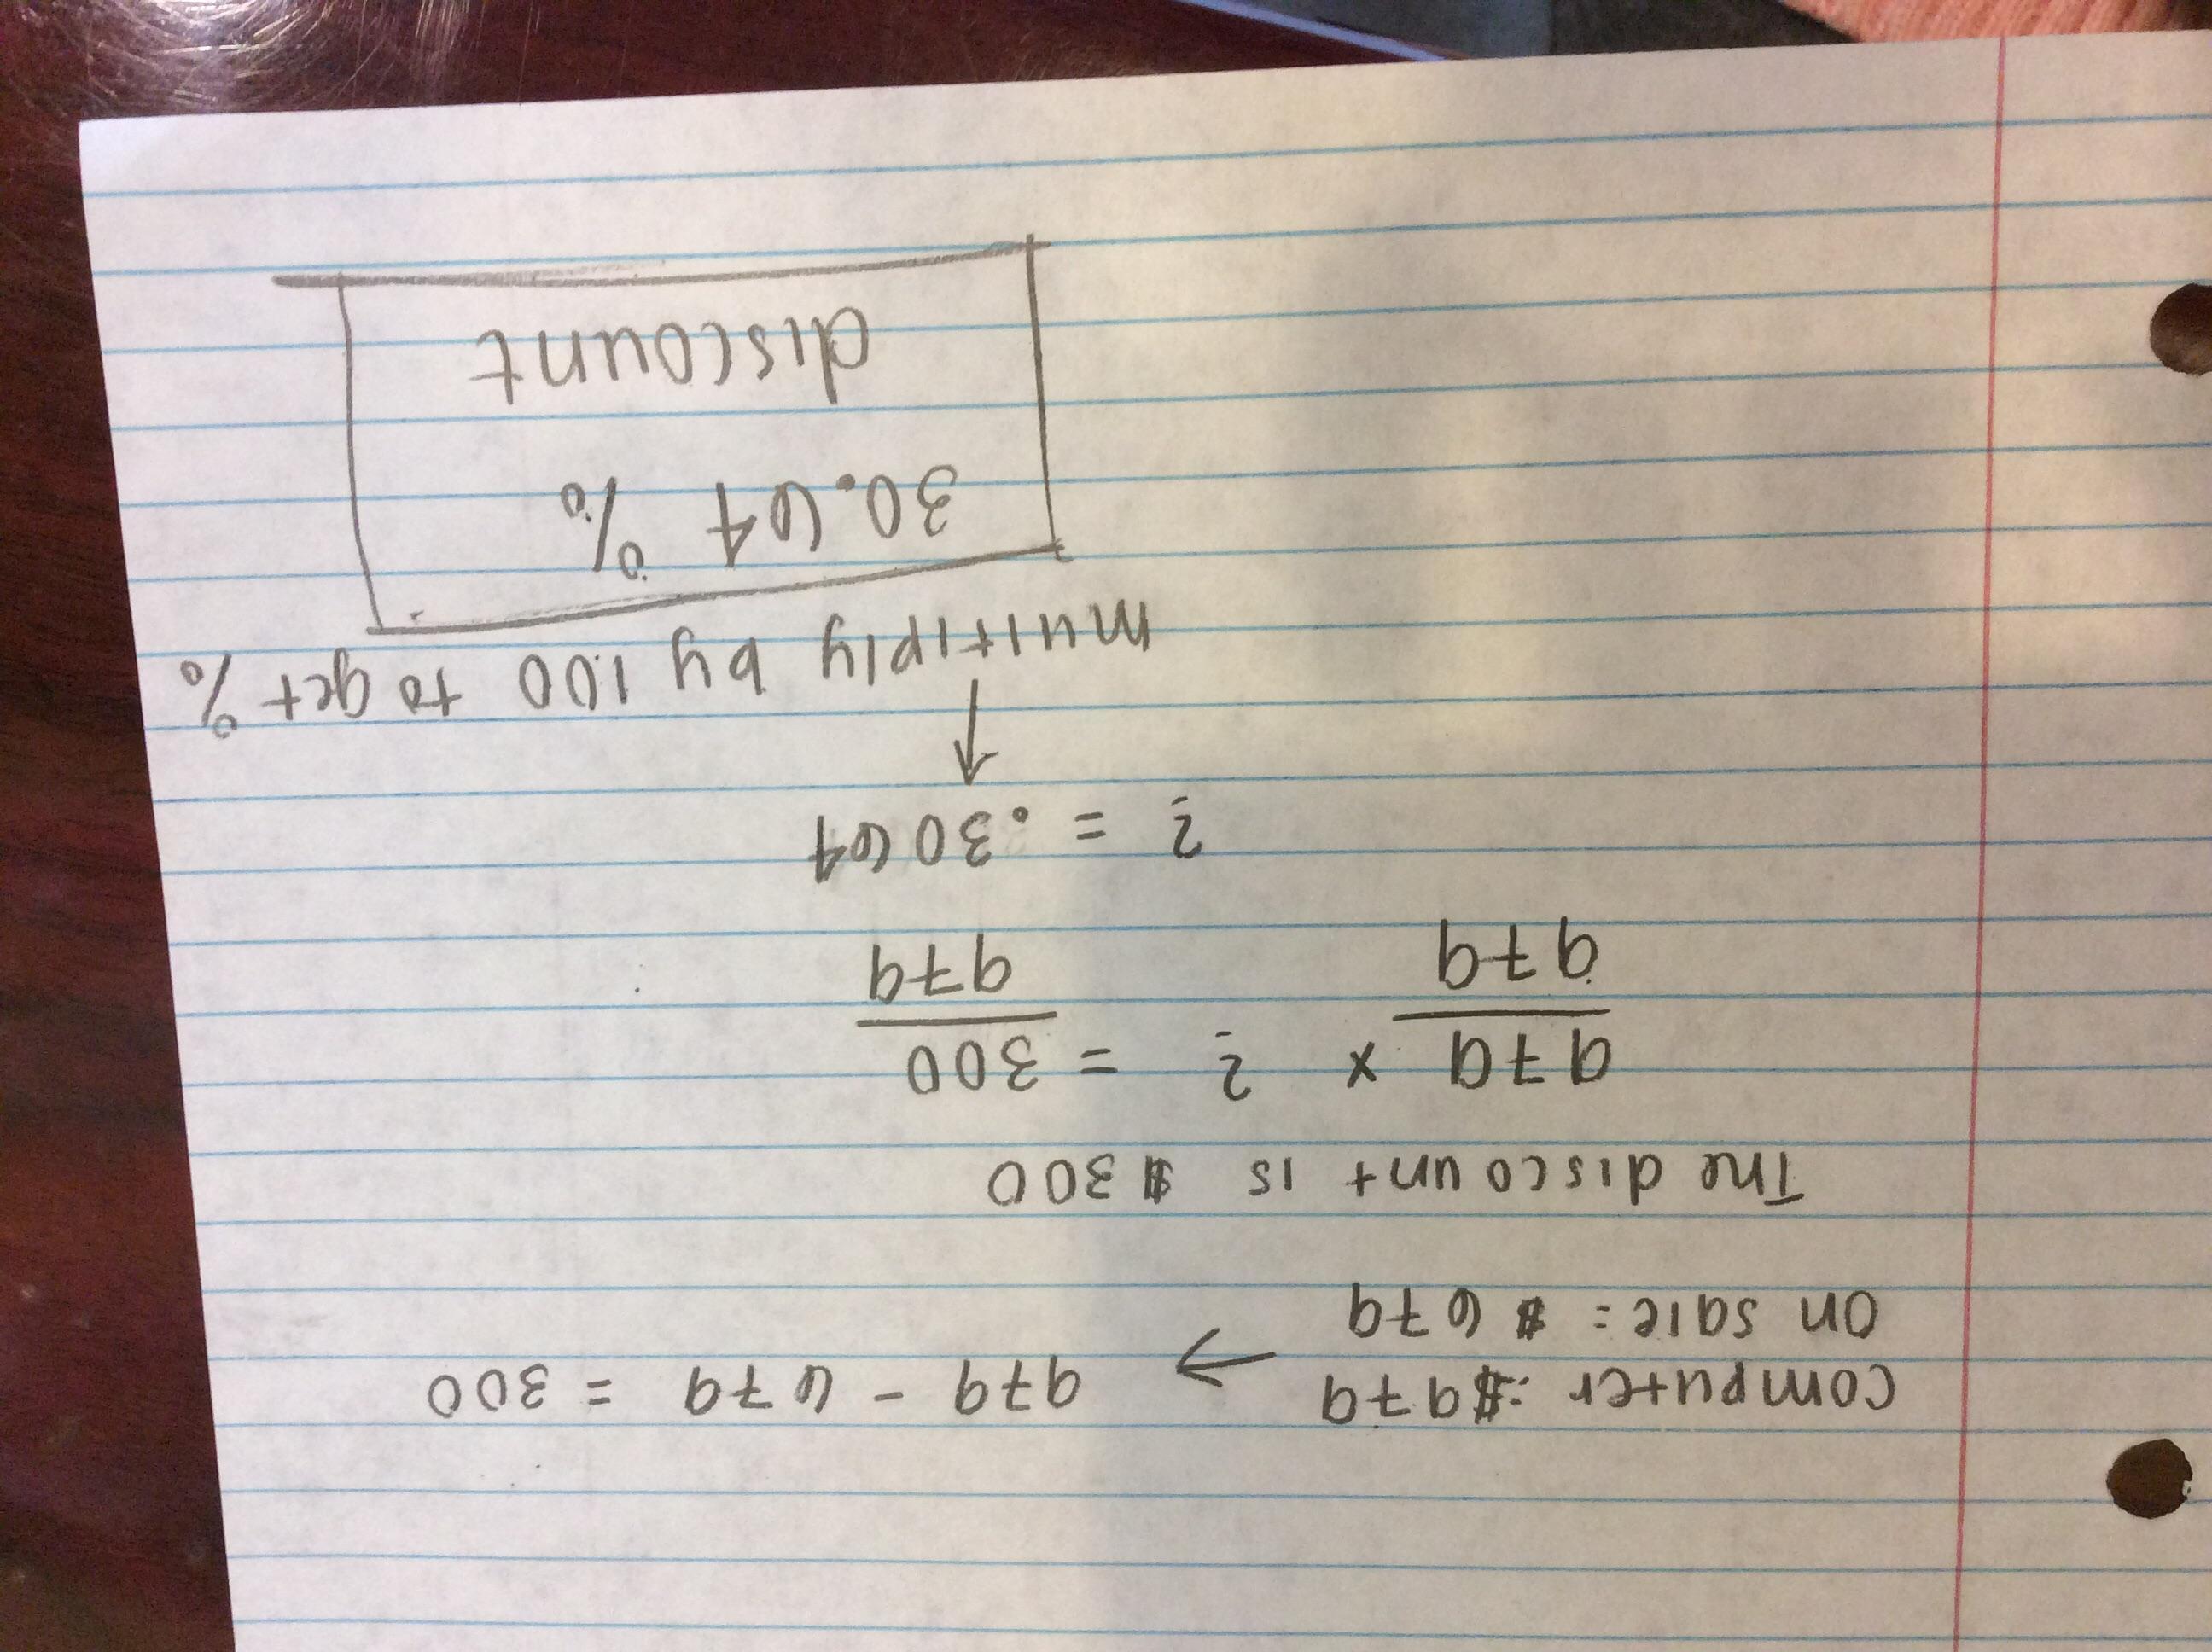 computer: $979 → 979 - 679 = 300
on sale: $679
The discount is $300
979 x ? = 300
979 979
? = .3064
↑
multiply by 100 to get %
30.64 %
discount